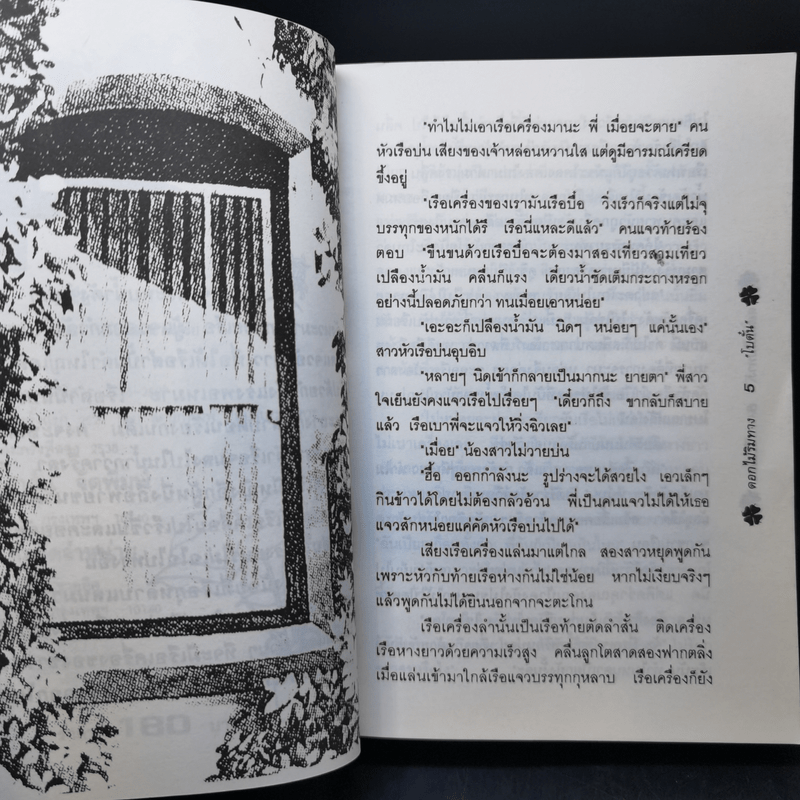 "ทำไมไม่เอาเรือเครื่องมานะ พี่ เมื่อยจะตาย" คน
หัวเรือบ่น เสียงของเจ้าหล่อนหวานใส แต่ดูมีอารมณ์เครียด
ขึ้งอยู่
"เรือเครื่องของเรามันเรือบื๋อ วิ่งเร็วก็จริงแต่ไม่จุ
บรรทุกของหนักได้รึ เรือนี่แหละดีแล้ว" คนแจวท้ายร้อง
ตอบ "ขืนขนด้วยเรือบื๋อจะต้องมาสองเที่ยวสามเที่ยว
เปลืองน้ำมัน คลื่นก็แรง เดี๋ยวน้ำซัดเต็มกระถางหรอก
อย่างนี้ปลอดภัยกว่า ทนเมื่อยเอาหน่อย"
"เอะอะก็เปลืองน้ำมัน นิดๆ หน่อยๆ แค่นั้นเอง"
สาวหัวเรือบ่นอุบอิบ
"หลายๆ นิดเข้าก็กลายเป็นมากนะ ยายตา" พี่สาว
ใจเย็นยังคงแจวเรือไปเรื่อยๆ "เดี๋ยวก็ถึง ขากลับก็สบาย
แล้ว เรือเบาพี่จะแจวให้วิ่งฉิวเลย"
"เมื่อย" น้องสาวไม่วายบ่น
"ฮื้อ ออกกำลังนะ รูปร่างจะได้สวยไง เอวเล็กๆ
กินข้าวได้โดยไม่ต้องกลัวอ้วน พี่เป็นคนแจวไม่ได้ให้เธอ
แจวสักหน่อยแค่คัดหัวเรือบ่นไปได้"
เสียงเรือเครื่องแล่นมาแต่ไกล สองสาวหยุดพูดกัน
เพราะหัวกับท้ายเรือห่างกันไม่ใช่น้อย หากไม่เงียบจริงๆ
แล้วพูดกันไม่ได้ยินนอกจากจะตะโกน
เรือเครื่องลำนั้นเป็นเรือท้ายตัดลำสั้น ติดเครื่อง
เรือหางยาวด้วยความเร็วสูง คลื่นลูกโตสาดสองฟากตลิ่ง
เมื่อแล่นเข้ามาใกล้เรือแจวบรรทุกกุหลาบ เรือเครื่องก็ยัง
ดอกไม้ริมทาง 5 "โบตั๋น"